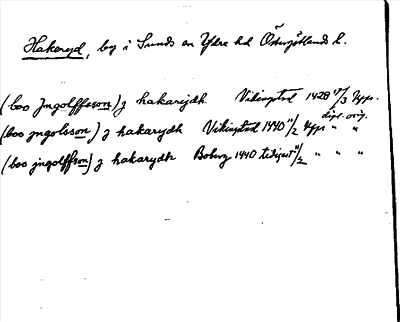 Hakeryd, by i Sunds sn Ydre hd Östergötlands l.
(boo Jngolffsson) j hakarydh Vikingstad 1428 17/3 Upps.
dipl. orig.
(boo jngolsson) j hakarydh Vikingstad 1440 11/2 Upps " "
(boo jngolffson) j hakarydh Boberg 1440 11/2 " " "